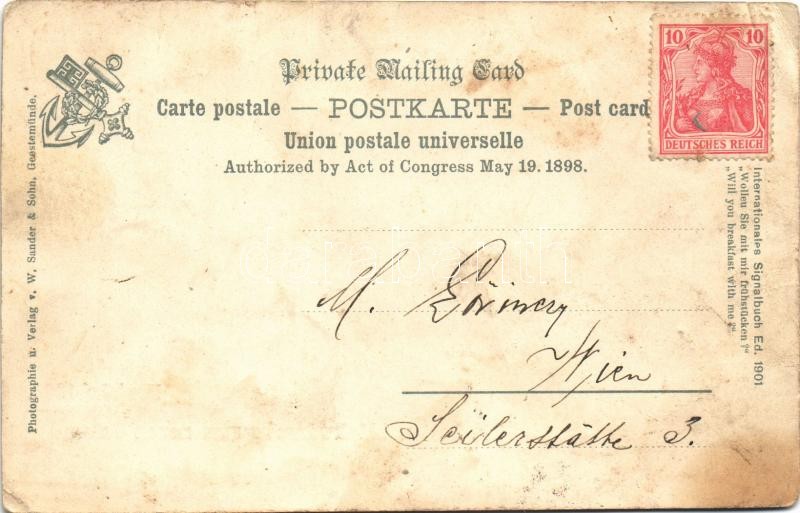 Private Mailing Card
Carte postale — POSTKARTE — Post card
Union postale universelle
Authorized by Act of Congress May 19. 1898.
10 10
DEUTSCHES REICH
Photographie u. Verlag v. W. Sander & Sohn, Geestemünde.
Internationales Signalbuch Ed. 1901
„Wollen Sie mit mir frühstücken?"
„Will you breakfast with me?"
M.
Wien
Seilerstätte 3.